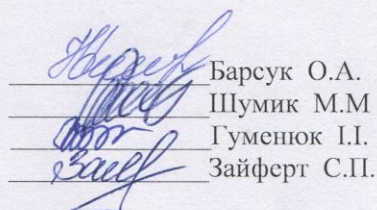 Барсук О.А.
Шумик М.М
Гуменюк І.І.
Зайферт С.П.